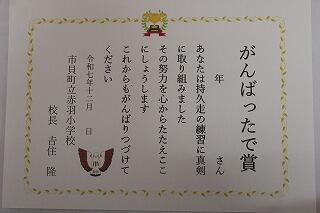 がんばったで賞
年 さん
あなたは持久走の練習に真剣
に取り組みました
その努力を心からたたえここ
にしょうします
これからもがんばりつづけて
ください
令和七年十二月 日
市貝町立赤羽小学校
校長 吉住 隆